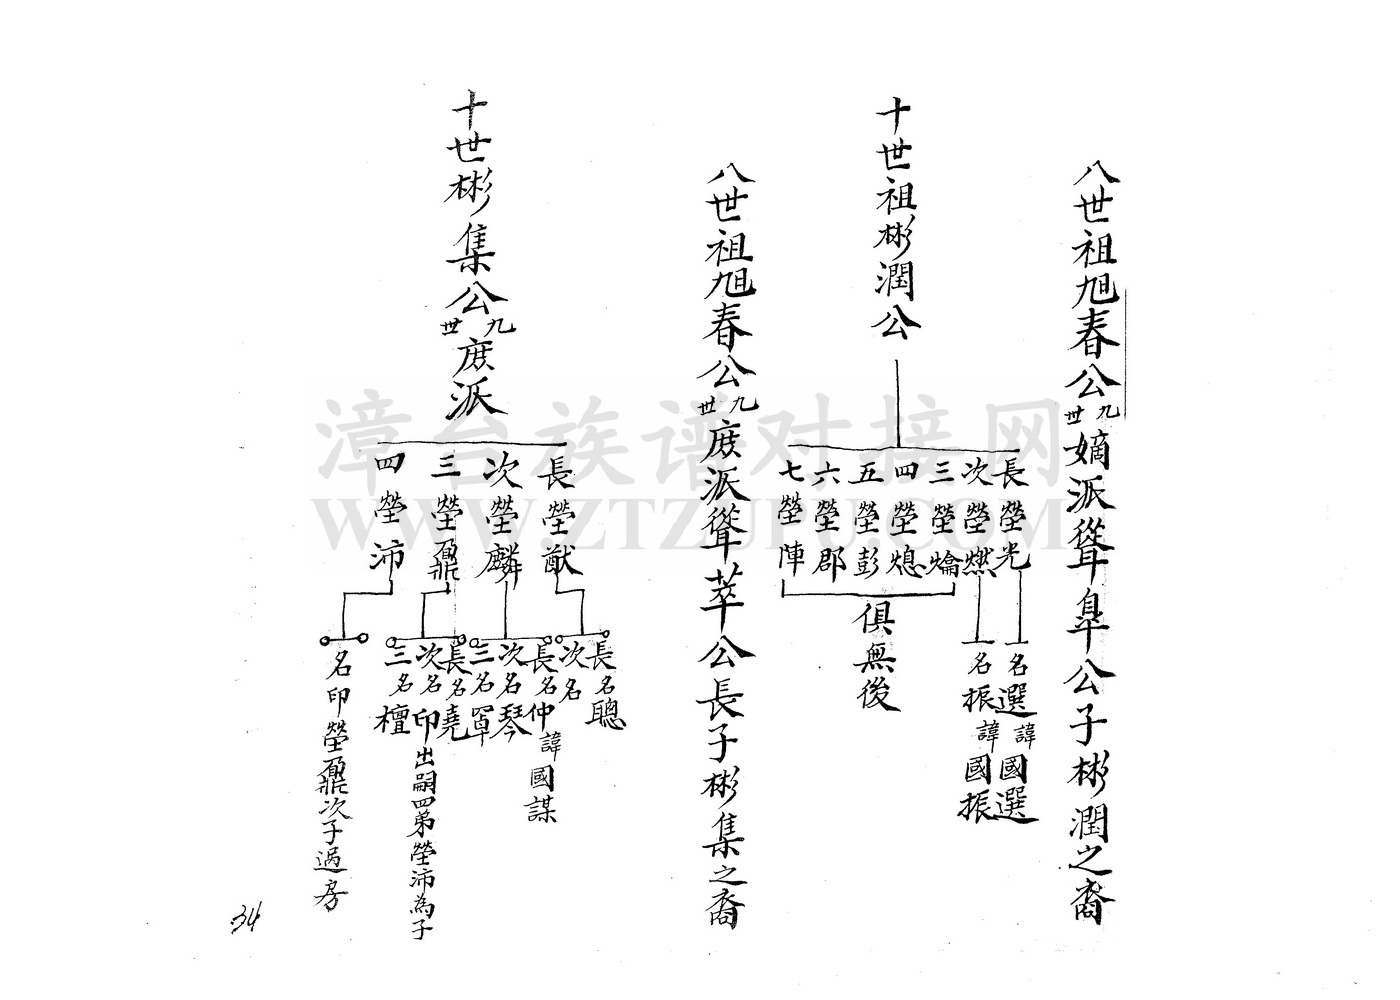 八世祖旭春公九世嫡派聳皐公子彬潤之裔
十世祖彬潤公
長塋光
次塋燃
三塋爚
四塋熜
五塋彭
六塋郡
七塋陣
名選諱國選
名振諱國振
俱無後
八世祖旭春公九世庶派聳萃公長子彬集之裔
十世彬集公九世庶派
長塋猷
次塋麟
三塋鼐
四塋沛
長名聰
次名
長名仲諱國謀
次名琴
三名罩
長名堯
次名印出嗣四弟塋沛為子
三名檀
名印塋鼐次子過房
34
漳台族谱对接网
WWW.ZTZUPU.COM